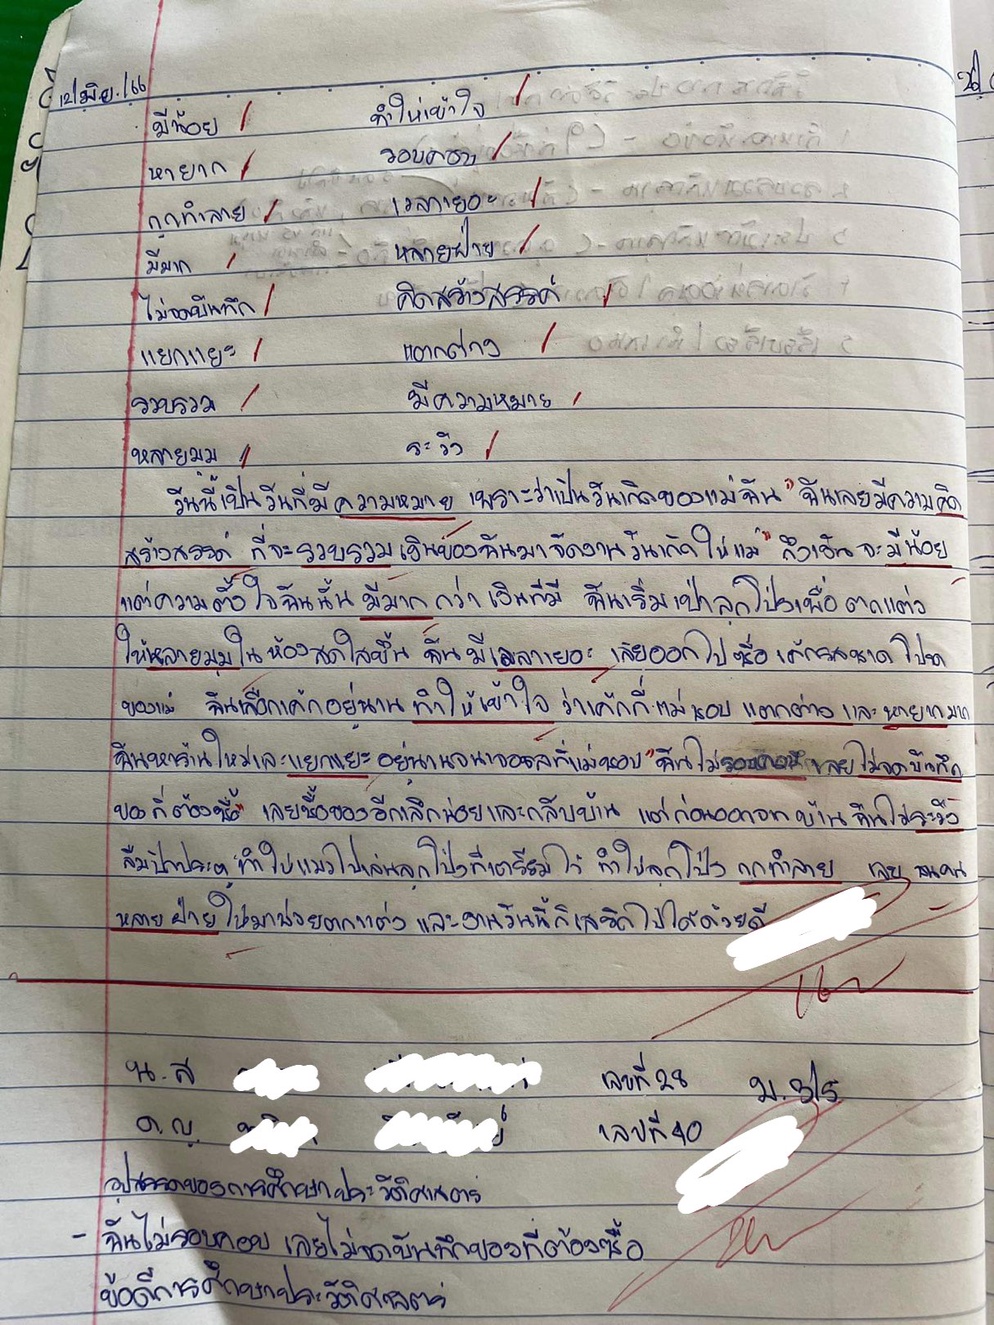 12 มิย./66
มีน้อย / ทำให้เข้าใจ /
หายาก / รอบคอบ /
ถูกทำลาย / เวลาเยอะ /
มีมาก / หลายฝ่าย /
ไม่จดบันทึก / คิดสร้างสรรค์ /
แยกแยะ / แตกต่าง /
รวบรวม / มีความหมาย /
หลายมุม / ระวัง /
วันนี้เป็นวันที่มีความหมาย เพราะว่าเป็นวันเกิดของแม่ฉัน ฉันเลยมีความคิด
สร้างสรรค์ ที่จะรวบรวมเงินของฉันมาจัดงานวันเกิดให้แม่ ถึงเงินจะมีน้อย
แต่ความตั้งใจฉันนั้น มีมากกว่า เงินที่มี ฉันเริ่มเป่าลูกโป่งเพื่อ ตกแต่ง
ให้หลายมุมในห้องสดใสขึ้น ฉันมีเวลาเยอะ เลยออกไปซื้อ เค้ก โปรด
ของแม่ ฉันเลือกเค้กอยู่นาน ทำให้เข้าใจ ว่าเค้กที่แม่ชอบ แตกต่าง และหายากมาก
ฉันหาร้านใหม่และแยกแยะ อยู่นานจนเจอ ที่แม่ชอบ ฉันไม่รอบคอบ เลยไม่จดบันทึก
ของที่ต้องซื้อ เลยซื้อของอีกเล็กน้อยและกลับบ้าน แต่ก่อนออกจากบ้าน ฉันไม่ระวัง
ลืมปิดประตู ทำให้แมวไปเล่นลูกโป่งที่เตรียมไว้ ทำให้ลูกโป่ง ถูกทำลาย เลย
หลายฝ่ายให้มาช่วยตกแต่ง และงานวันนี้ก็เสร็จไปได้ด้วยดี
น.ส เลขที่ 28 ม.3/5
ด.ญ. เลขที่ 40
อุปสรรคของการศึกษาประวัติศาสตร์
- ฉันไม่รอบคอบ เลยไม่จดบันทึกของที่ต้องซื้อ
ข้อดีการศึกษาประวัติศาสตร์